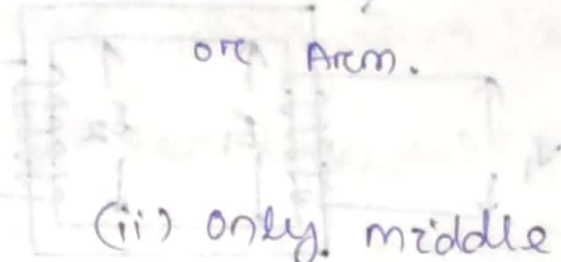 or Arm.
(ii) only middle